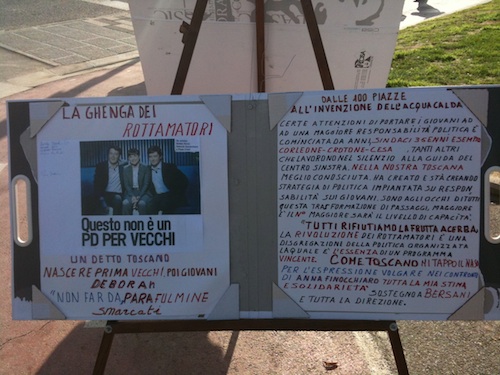 LA GHENGA DEI
ROTTAMATORI
Questo non è un
PD PER VECCHI
UN DETTO TOSCANO
NASCERE PRIMA VECCHI, POI GIOVANI
DEBORAH
"NON FAR DA PARAFULMINE
SMARCATI
DALLE 400 PIAZZE
ALL'INVENZIONE DELL'ACQUA CALDA
CERTE ATTENZIONI DI PORTARE I GIOVANI AD
AD UNA MAGGIORE RESPONSABILITÀ POLITICA È
COMINCIATA DA ANNI, SINDACI 35ENNI ESEMPIO
CORLEONE-CROTONE-CESA TANTI ALTRI
CHE LAVORONO NEL SILENZIO ALLA GUIDA DEL
CENTRO SINISTRA. NELLA NOSTRA TOSCANA
MEGLIO CONOSCIUTA HA CREATO E STÀ CREANDO
STRATEGIA DI POLITICA IMPIANTATA SU RESPON
SABILITÀ SUI GIOVANI, SONO AGLI OCCHI DI TUTTO
QUESTA TRASFORMAZIONE DI PASSAGGI, MAGGIORE
È IL N° MAGGIORE SARÀ IL LIVELLO DI CAPACITÀ.
"TUTTI RIFIUTIAMO LA FRUTTA ACERBA,
LA RIVOLUZIONE DEI ROTTAMATORI È UNA
DISGREGAZIONE DELLA POLITICA ORGANIZZATA
LA QUALE È L'ESSENZA DI UN PROGRAMMA
VINCENTE. COME TOSCANO MI TAPPO IL NASO
PER L'ESPRESSIONE VOLGARE NEI CONFRONTI
DI ANNA FINOCCHIARO TUTTA LA MIA STIMA
E SOLIDARIETÀ. SOSTEGNO A BERSANI
E TUTTA LA DIREZIONE.